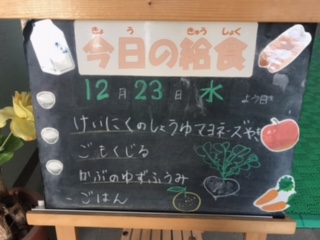 きょう きゅうしょく
今日の給食
12月23日 水 よう日
けいにくのしょうゆマヨネーズやき
ごもくじる
かぶのゆずふうみ
ごはん